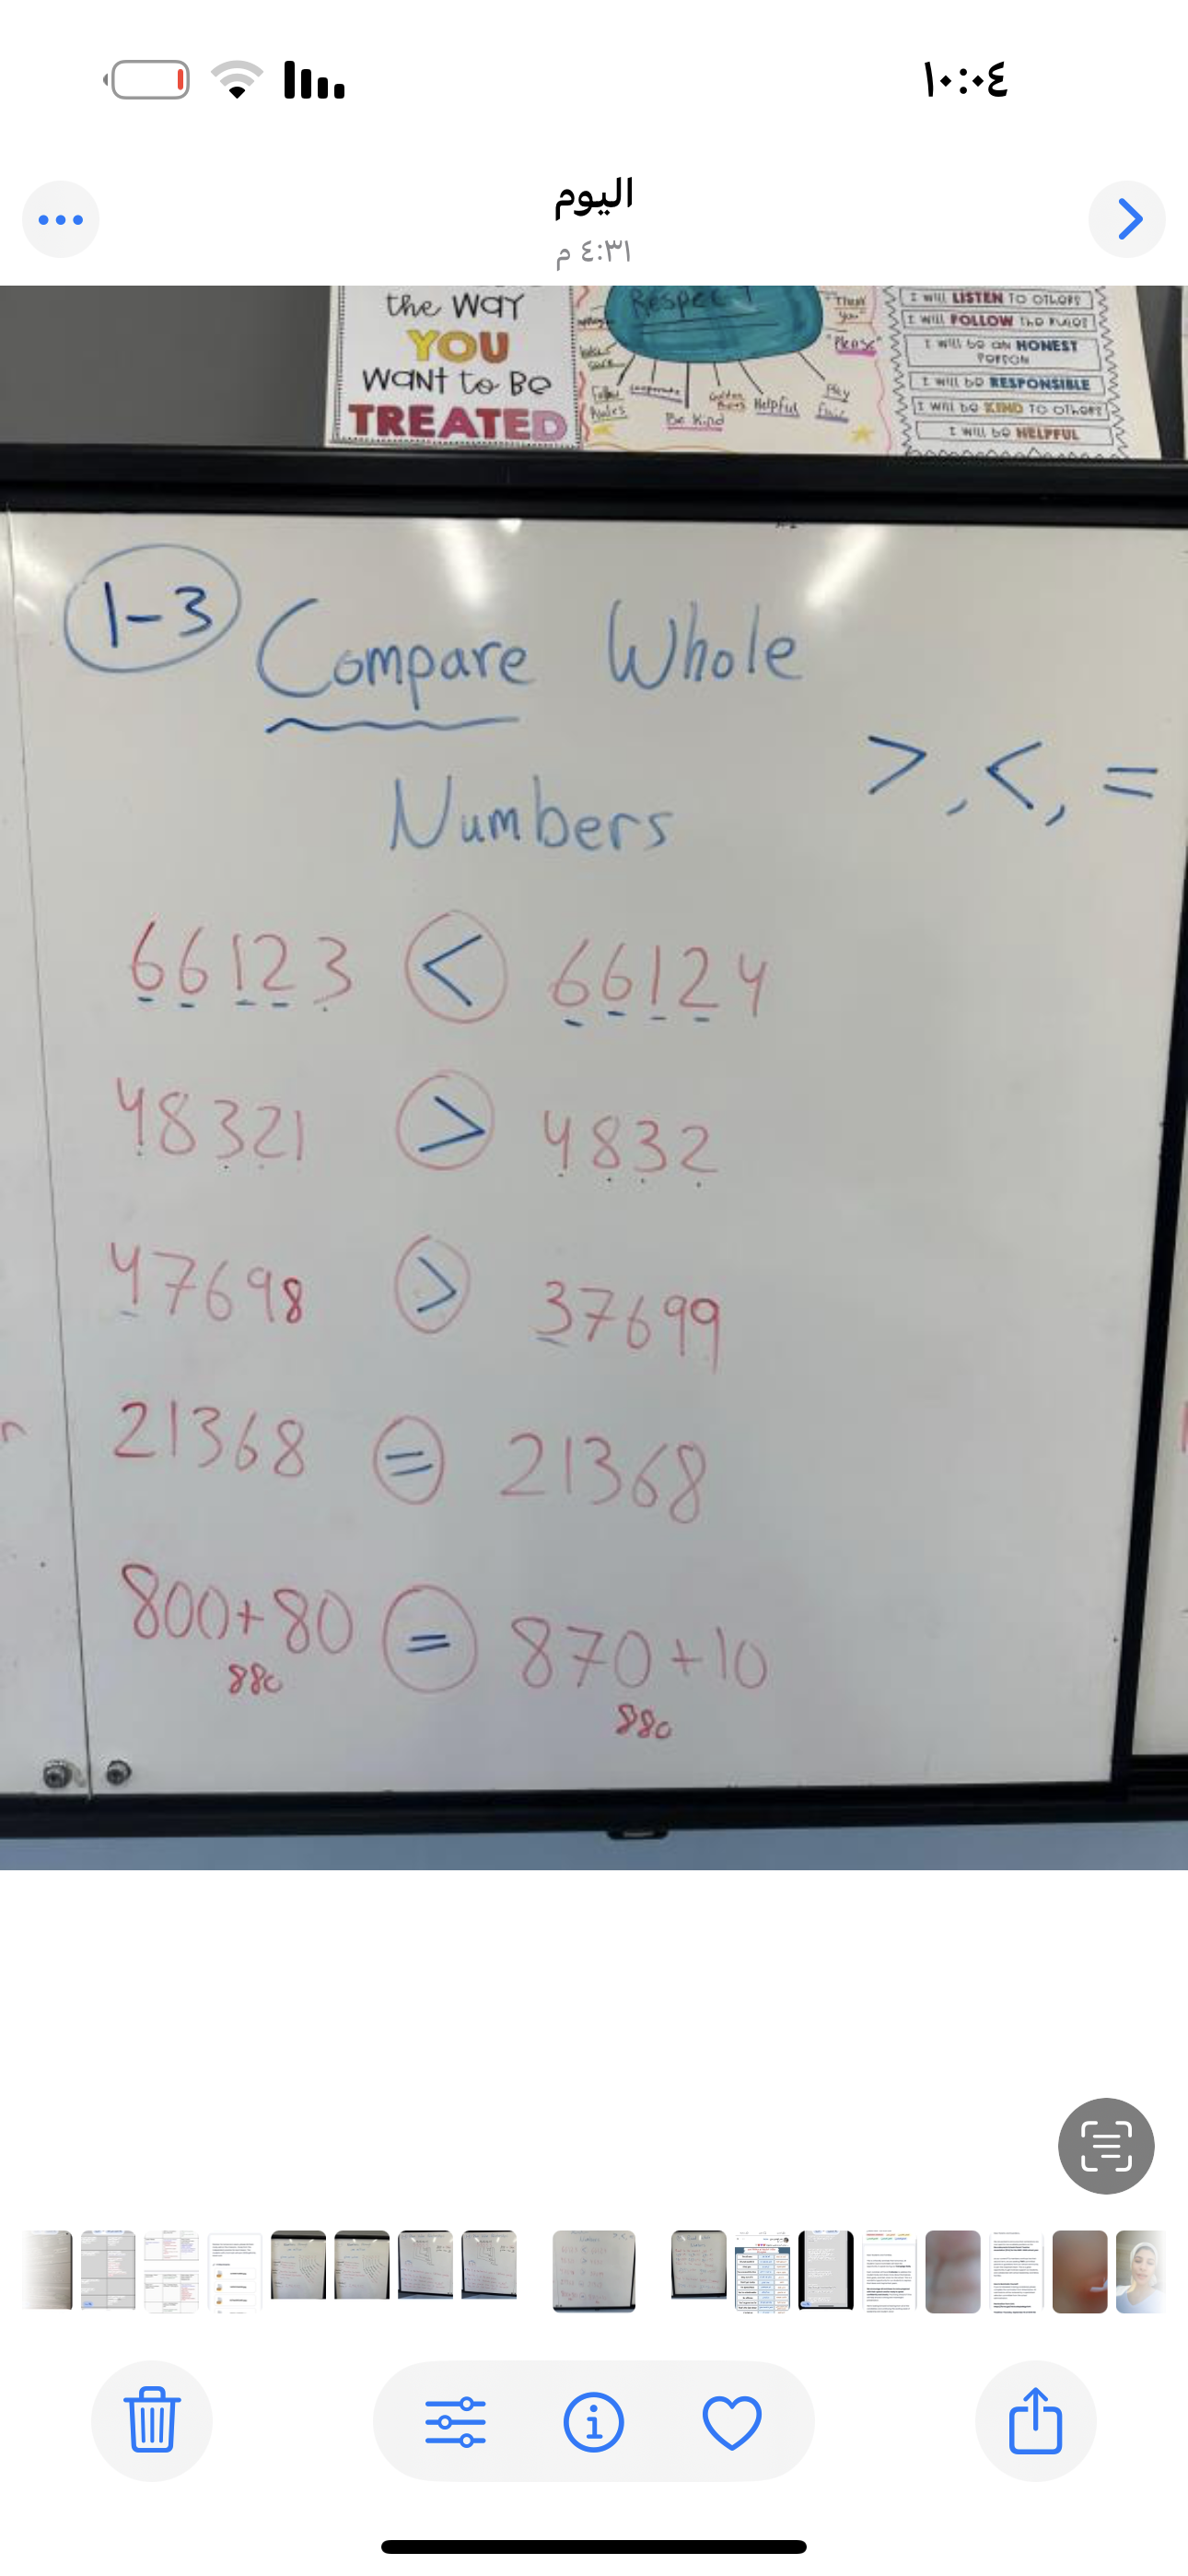 ١٠:٠٤
اليوم
٤:٣١ م
the Way
YOU
WANT to BE
TREATED
Respect
"Thank you"
"Please"
Follow Rules
Cooperate
Be Kind
Golden Rules
Helpful
Play Fair
I will LISTEN TO OTHERS
I will FOLLOW the RULES
I will be an HONEST PERSON
I will be RESPONSIBLE
I will be KIND TO OTHERS
I will be HELPFUL
1-3 Compare Whole
Numbers
>, <, =
66123 < 66124
48321 > 4832
47698 > 37699
21368 = 21368
800+80 = 870+10
880 880